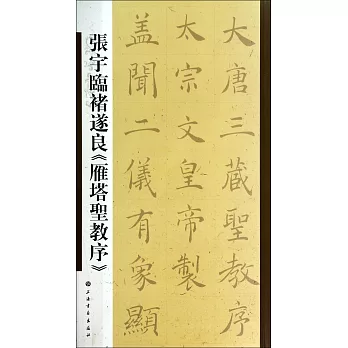 張宇臨褚遂良《雁塔聖教序》
上海書畫出版社
大唐三藏聖教序
太宗文皇帝製
盖聞二儀有象顯